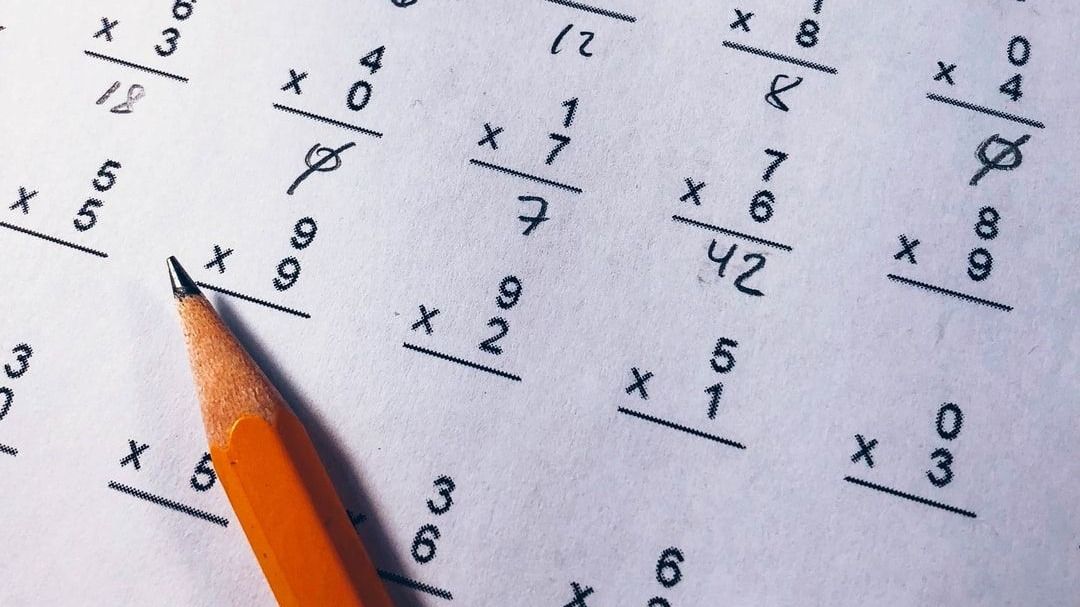 6
x 3
18
4
x 0
0
12
x 8
8
0
x 4
0
5
x 5
1
x 7
7
7
x 6
42
8
x 9
9
x 9
9
x 2
5
x 1
0
x 3
3
x 5
3
6
6
x